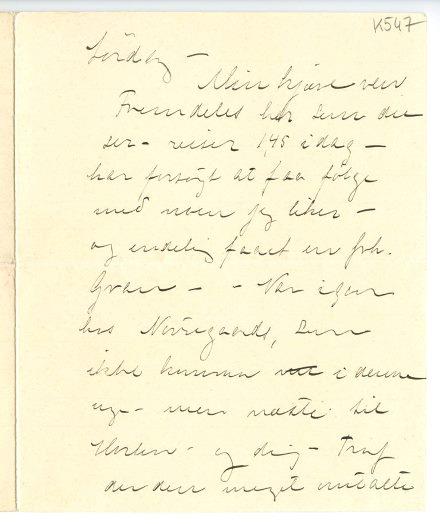 K547
Lördag –
Min kjære ven
Fremdeles her som du
ser – reiser 1,45 idag –
har forsøgt at faa følge
med noen jeg liker –
og endelig faaet en frk.
Gran – – Var igaar
hos Nørregaards, som
ikke kommer i denne
uge – men næste til
Horten – og dig – Traf
der den meget omtalte